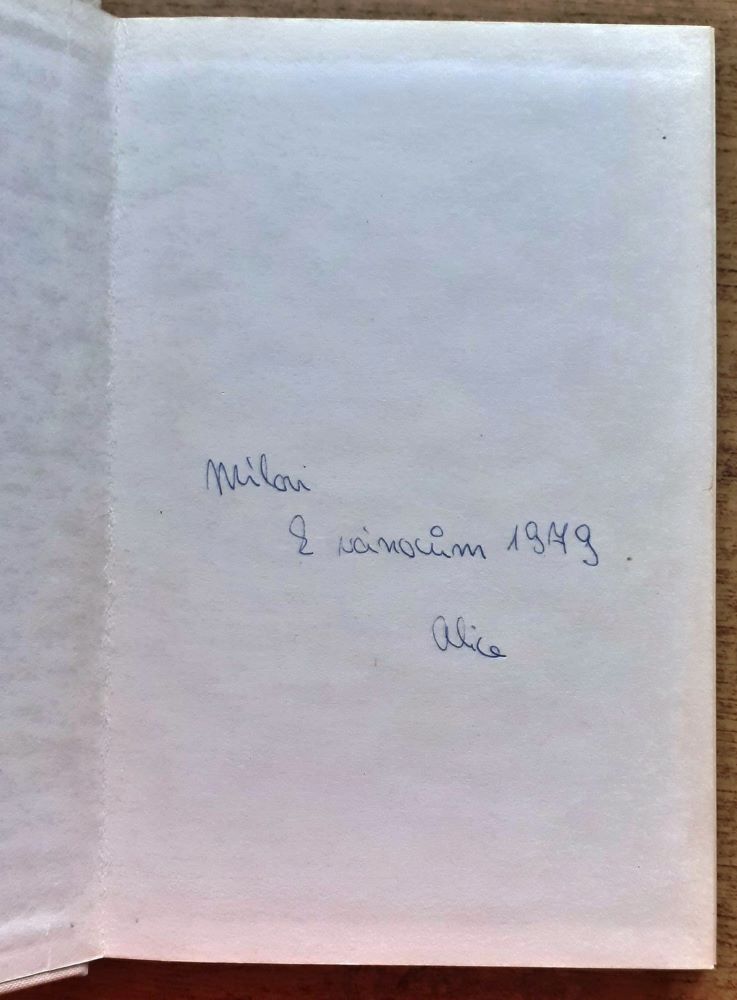 Milovi
K vánocům 1979
Alice